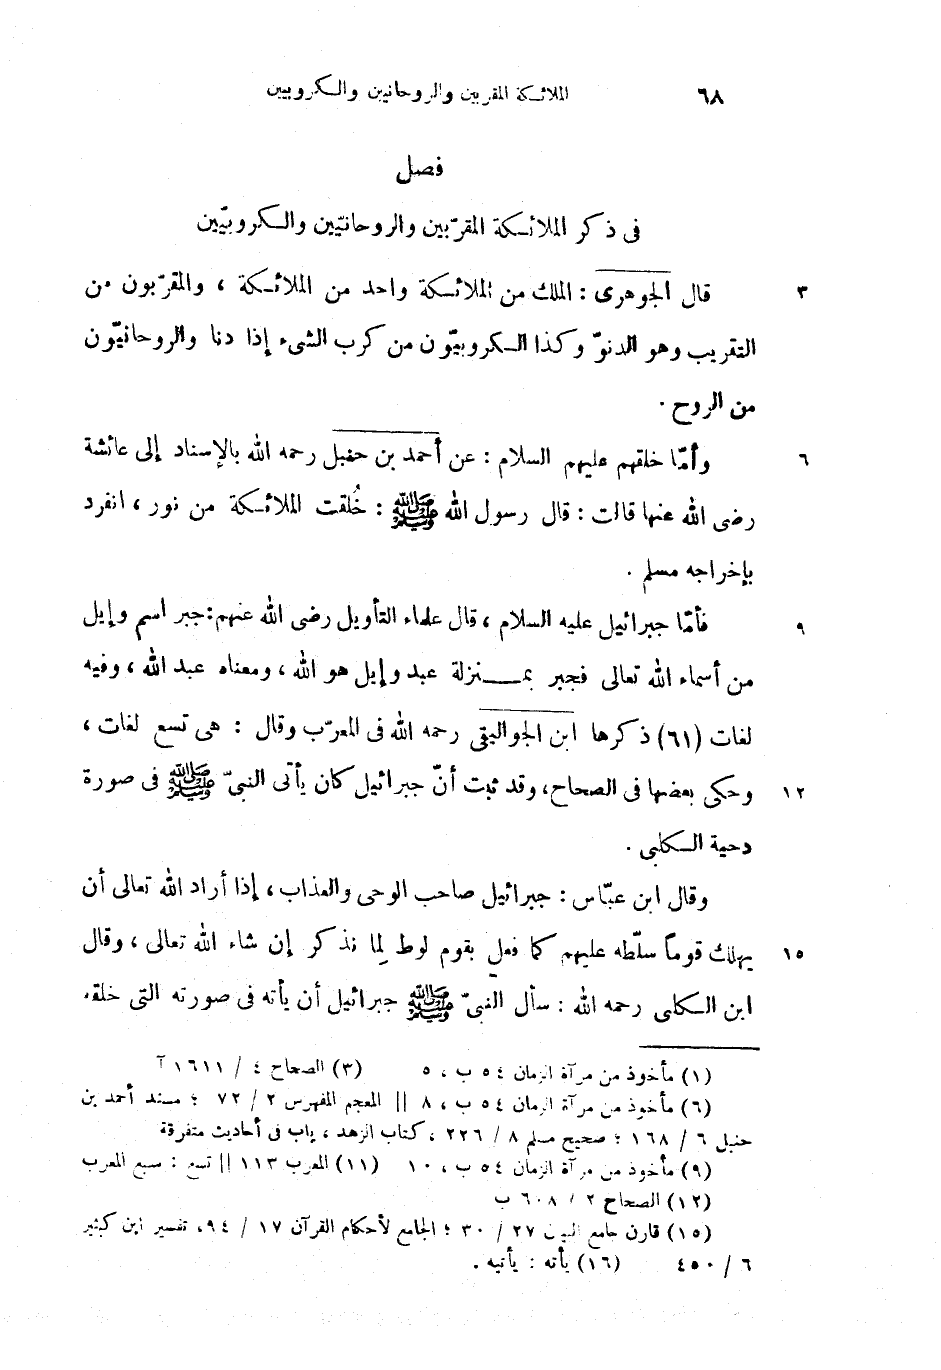 ٦٨ الملائكة المقربين والروحانيين والكروبيين
فصل
فى ذكر الملائكة المقرّبين والروحانيّين والكروبيّين
٣ قال الجوهرى : الملك من الملائكة واحد من الملائكة ، والمقرّبون من
التقريب وهو الدنوّ وكذا الكروبيّون من كرب الشىء إذا دنا والروحانيّون
من الروح .
٦ وأمّا خلقهم عليهم السلام : عن أحمد بن حنبل رحمه الله بالإسناد إلى عائشة
رضى الله عنها قالت : قال رسول الله ﷺ : خُلقت الملائكة من نور ، انفرد
بإخراجه مسلم .
٩ فأمّا جبرائيل عليه السلام ، قال علماء التأويل رضى الله عنهم : جبر اسم وإيل
من أسماء الله تعالى فجبر بمـــنزلة عبد وإيل هو الله ، ومعناه عبد الله ، وفيه
لغات (٦١) ذكرها ابن الجواليقى رحمه الله فى المعرّب وقال : هى تسع لغات ،
١٢ وحكى بعضها فى الصحاح ، وقد ثبت أنّ جبرائيل كان يأتى النبىّ ﷺ فى صورة
دحية الكلبى .
وقال ابن عبّاس : جبرائيل صاحب الوحى والعذاب ، إذا أراد الله تعالى أن
١٥ يهلك قوماً سلّطه عليهم كما فعل بقوم لوط لِما نذكر إن شاء الله تعالى ، وقال
ابن الكلبى رحمه الله : سأل النبىّ ﷺ جبرائيل أن يأته فى صورته التى خلقه
(١) مأخوذ من مرآة الزمان ٥٤ ب ، ٥ (٣) الصحاح ٤ / ١٦١١ آ
(٦) مأخوذ من مرآة الزمان ٥٤ ب ، ٨ || المعجم المفهرس ٢ / ٧٢ ؛ مسند أحمد بن
حنبل ٦ / ١٦٨ ؛ صحيح مسلم ٨ / ٢٢٦ ، كتاب الزهد ، باب فى أحاديث متفرقة
(٩) مأخوذ من مرآة الزمان ٥٤ ب ، ١٠ (١١) المعرب ١١٣ || تسع : سبع المعرب
(١٢) الصحاح ٢ / ٦٠٨ ب
(١٥) قارن جامع البيان ٢٧ / ٣٠ ؛ الجامع لأحكام القرآن ١٧ / ٩٤ ، تفسير ابن كثير
٦ / ٤٥٠ (١٦) يأته : يأتيه .